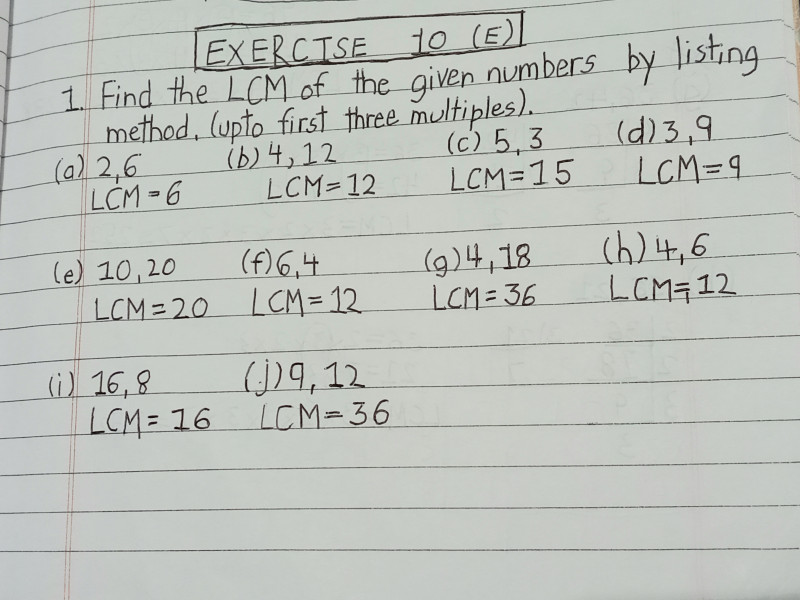 EXERCISE 10 (E)
1. Find the LCM of the given numbers by listing
method. (upto first three multiples).
(a) 2,6 (b) 4, 12 (c) 5, 3 (d) 3, 9
LCM = 6 LCM = 12 LCM = 15 LCM = 9
(e) 10, 20 (f) 6,4 (g) 4, 18 (h) 4, 6
LCM = 20 LCM = 12 LCM = 36 LCM = 12
(i) 16, 8 (j) 9, 12
LCM = 16 LCM = 36